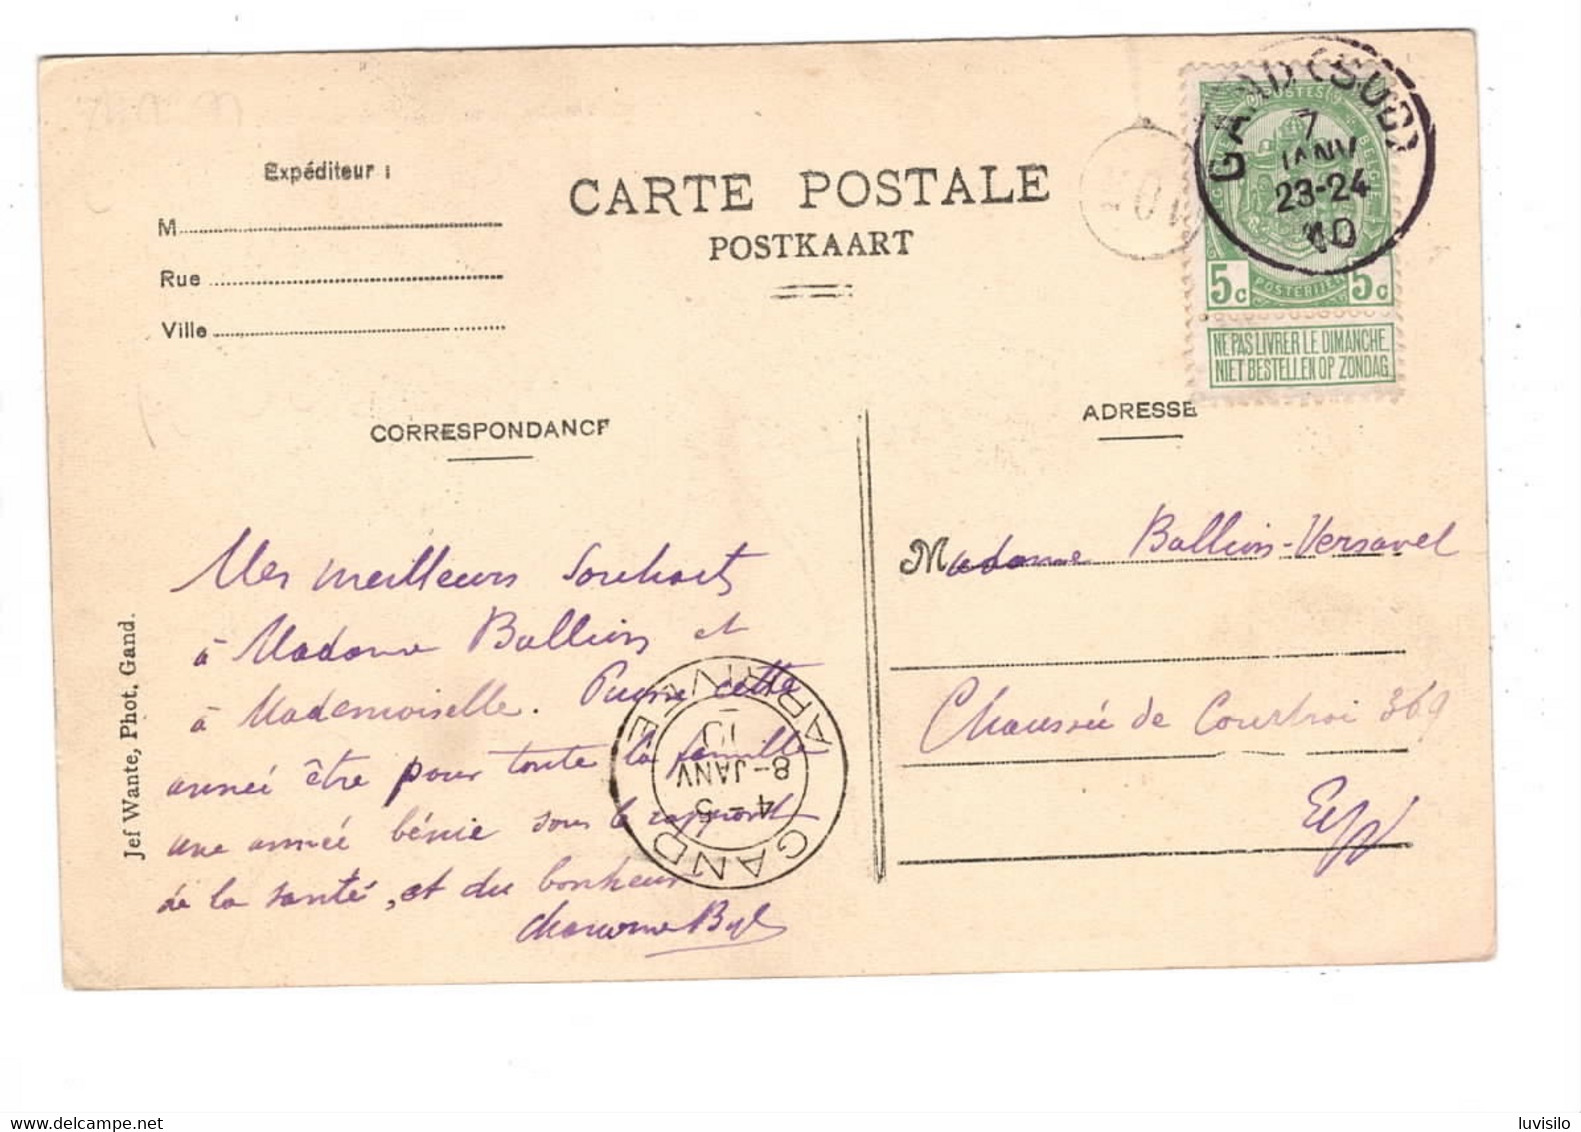 Expéditeur :
M
Rue
Ville
CARTE POSTALE
POSTKAART
GAND (SUD)
7
JANV
23-24
10
POSTERIJEN
5c 5c
NE PAS LIVRER LE DIMANCHE.
NIET BESTELLEN OP ZONDAG.
CORRESPONDANCE
ADRESSE
Mes meilleurs Souhaits
à Madame Balliur et
à Mademoiselle. Puisse cette
année être pour toute la famille
une année bénie sous le rapport
de la santé, et du bonheur
Byl
GAND
4-5
8-JANV
10
ARRIVÉE
Madame Versavel
Chaussée de Courtrai 369
Jef Wante, Phot. Gand.
luvisilo